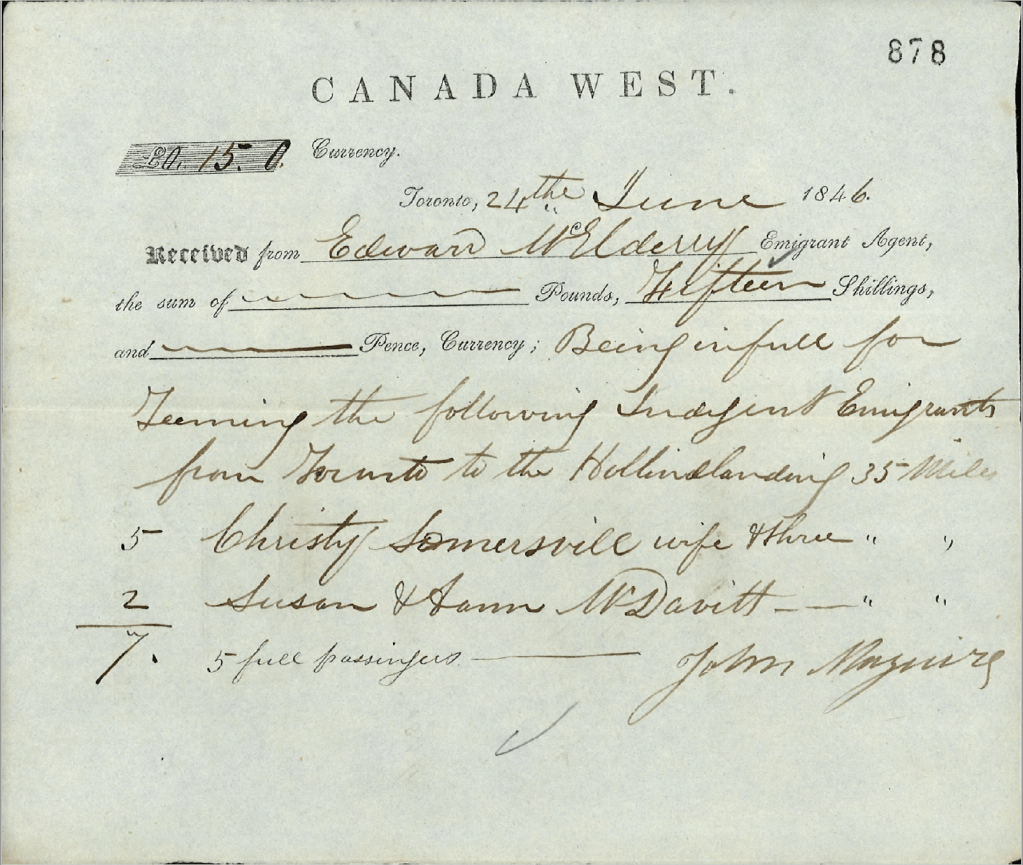 878
CANADA WEST.
£0. 15. 0. Currency.
Toronto, 24th June 1846.
Received from Edward McElderry Emigrant Agent,
the sum of Pounds, Fifteen Shillings,
and Pence, Currency; Being in full for
Teeming the following Indigent Emigrants
from Toronto to the Hollindlanding 35 Miles
5 Christy Somersvill wife & three " "
2 Susan & McDavitt — — " "
7. 5 full passingers — John Maguire